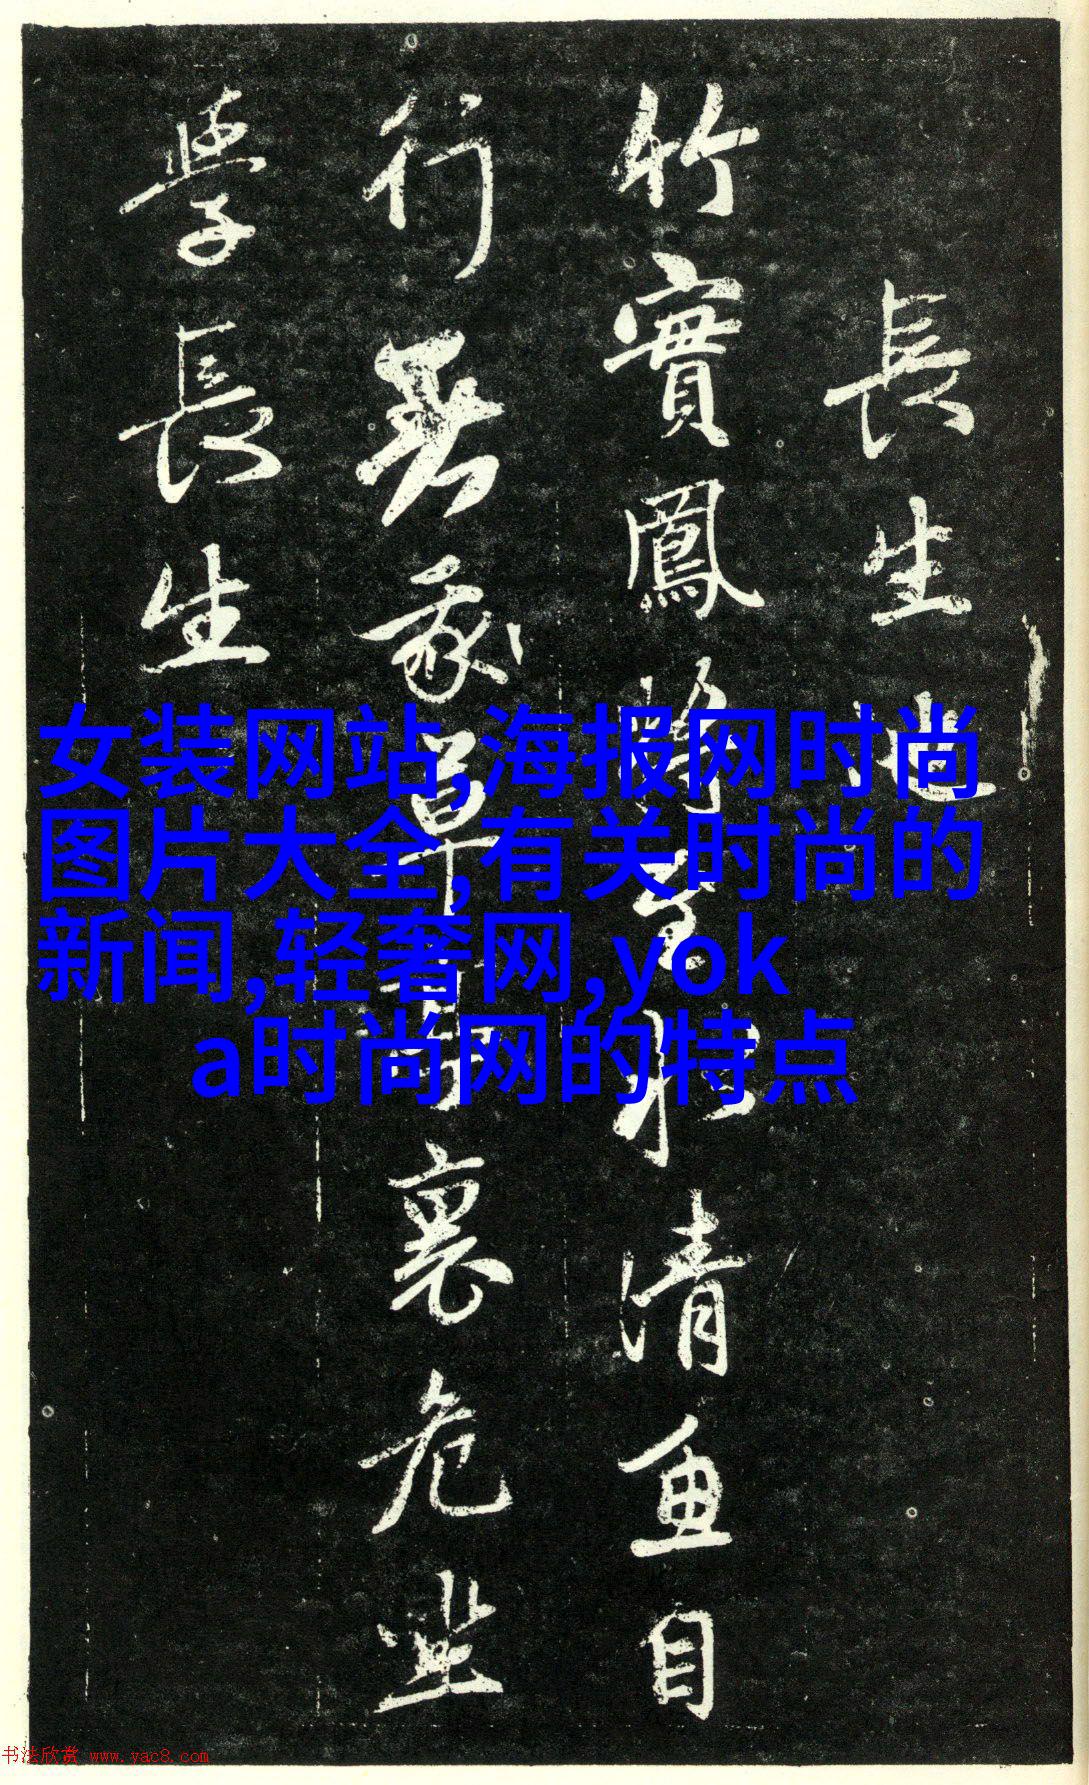 長生池
竹實鳳將至清魚自
行家草堂裏危坐
學長生
女装网站,海报网时尚
图片大全,有关时尚的
新闻,轻奢网,yok
a时尚网的特点
书法欣赏 www.yac8.com